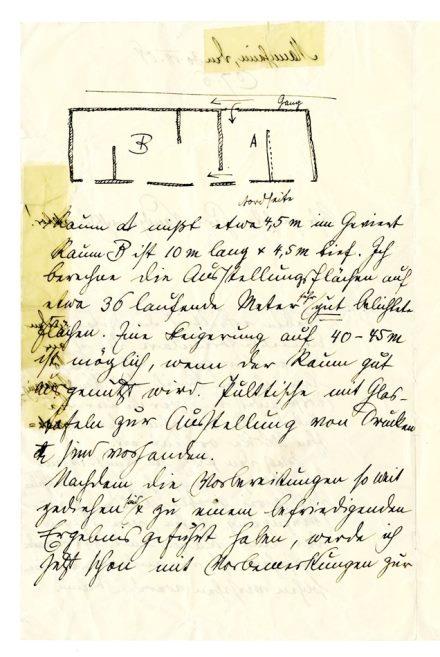 Gang
B
A
Nordseite
Raum A mißt etwa 4,5 m im Geviert
Raum B ist 10 m lang x 4,5 m tief. Ich
berechne die Ausstellungsflächen auf
etwa 36 laufende Meter sehr gut belichtete
Flächen. Eine Steigerung auf 40-45 m
ist möglich, wenn der Raum gut
ausgenutzt wird. Pulttische mit Glas-
tafeln zur Ausstellung von Drucken
sind vorhanden.
Nachdem die Vorbereitungen so weit
gediehen & zu einem befriedigenden
Ergebnis geführt haben, werde ich
jetzt schon mit Vorbemerkungen zur